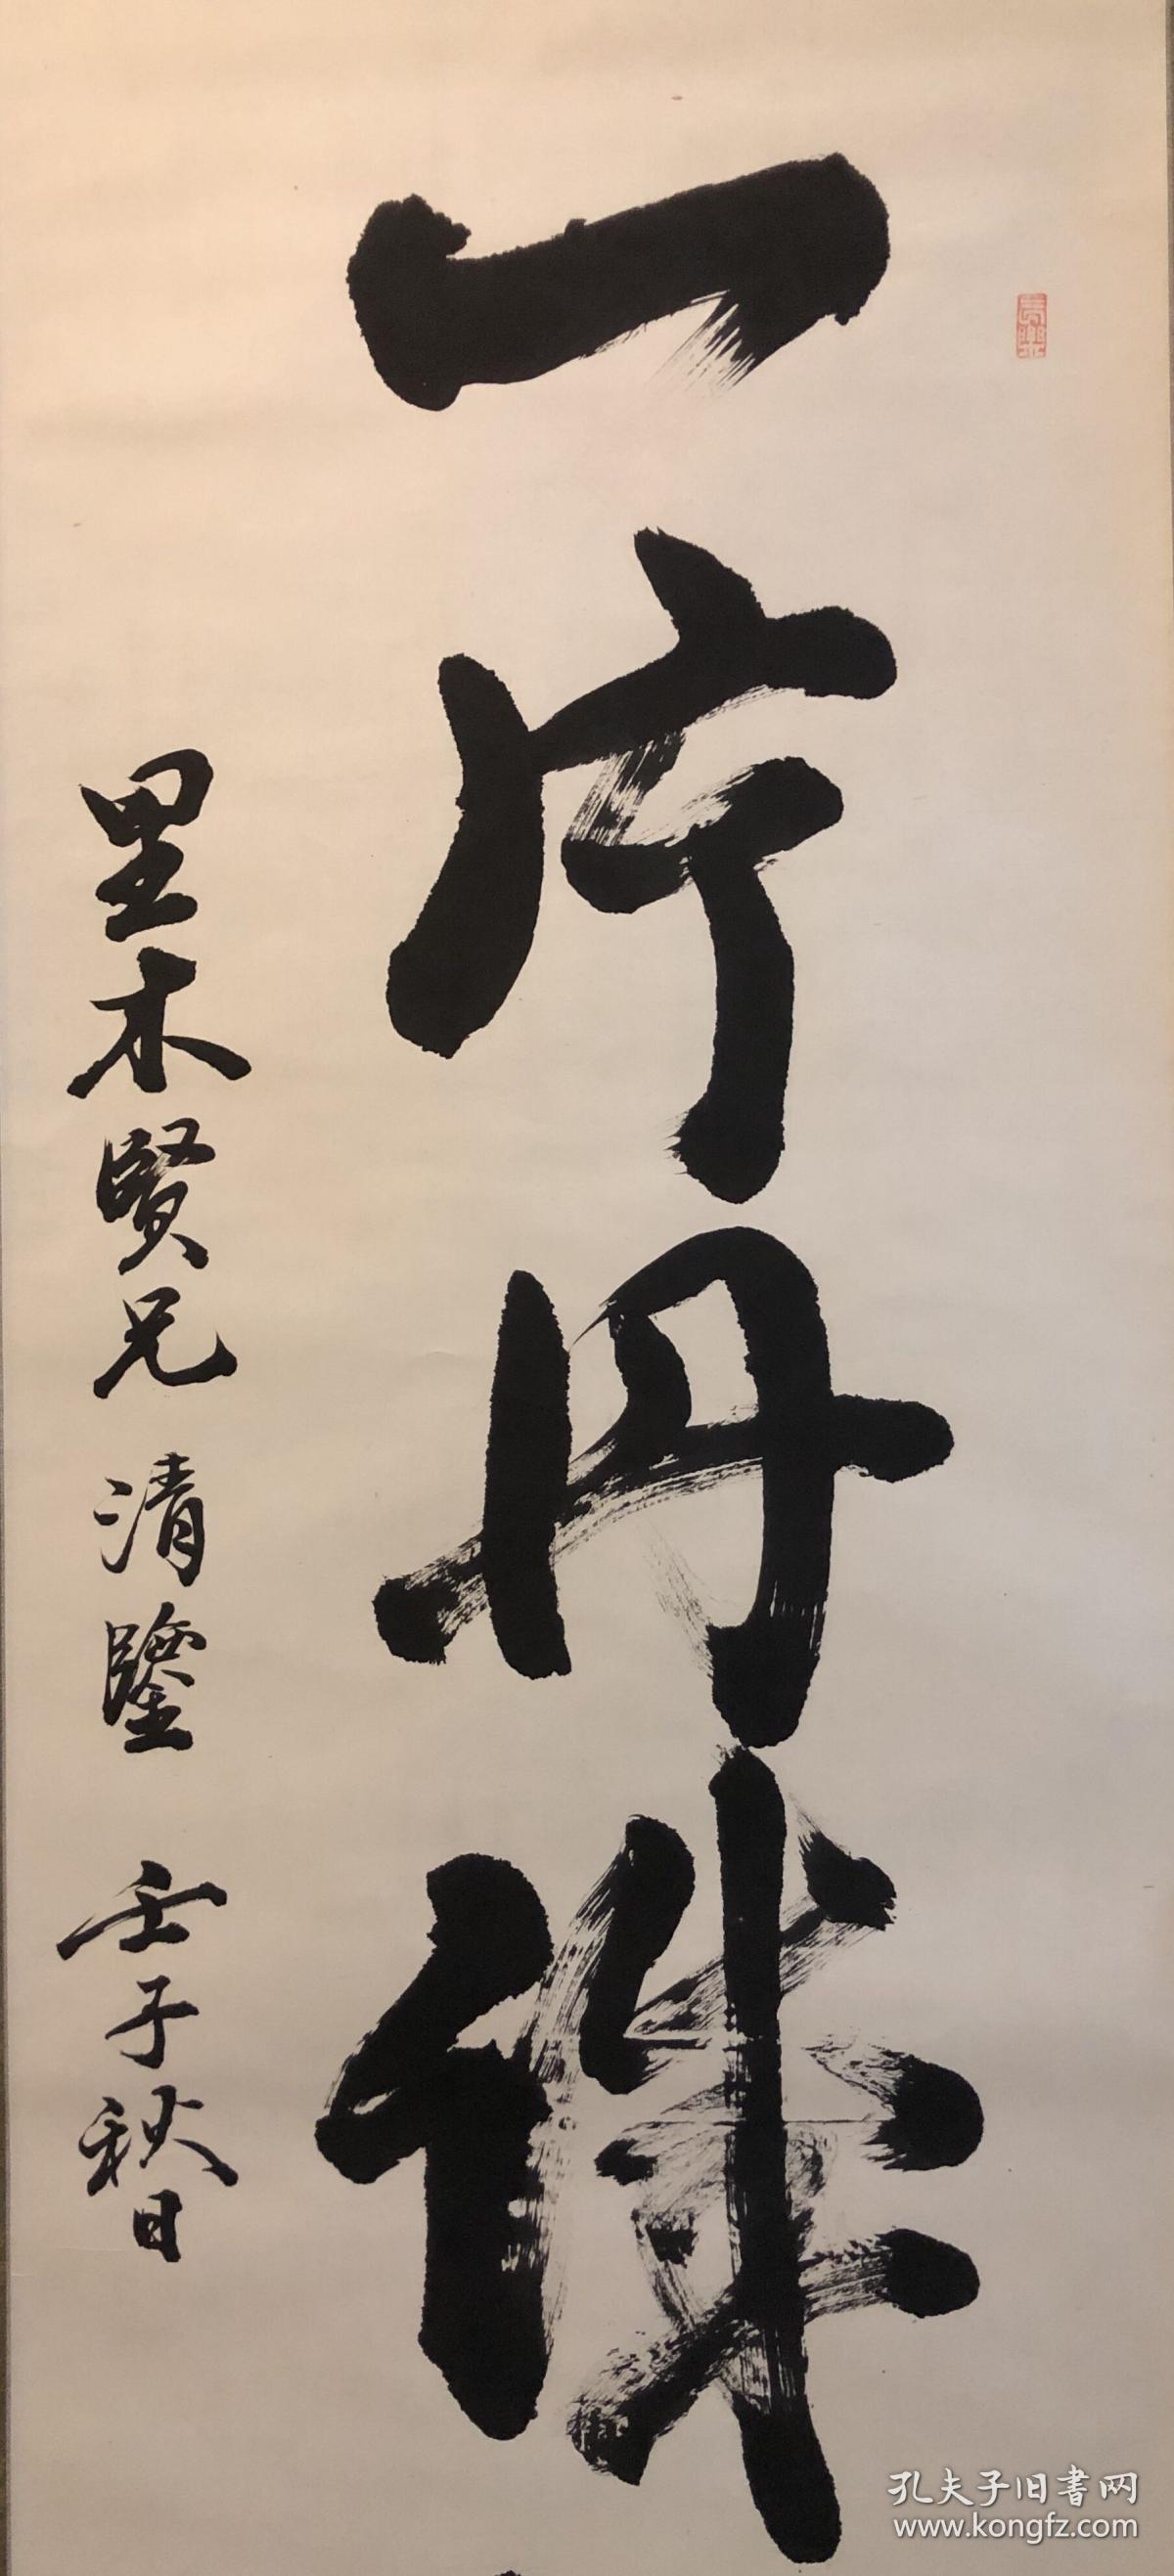 一片丹
里木賢兄 清鑒 壬子秋日
長樂
孔夫子旧书网
www.kongfz.com